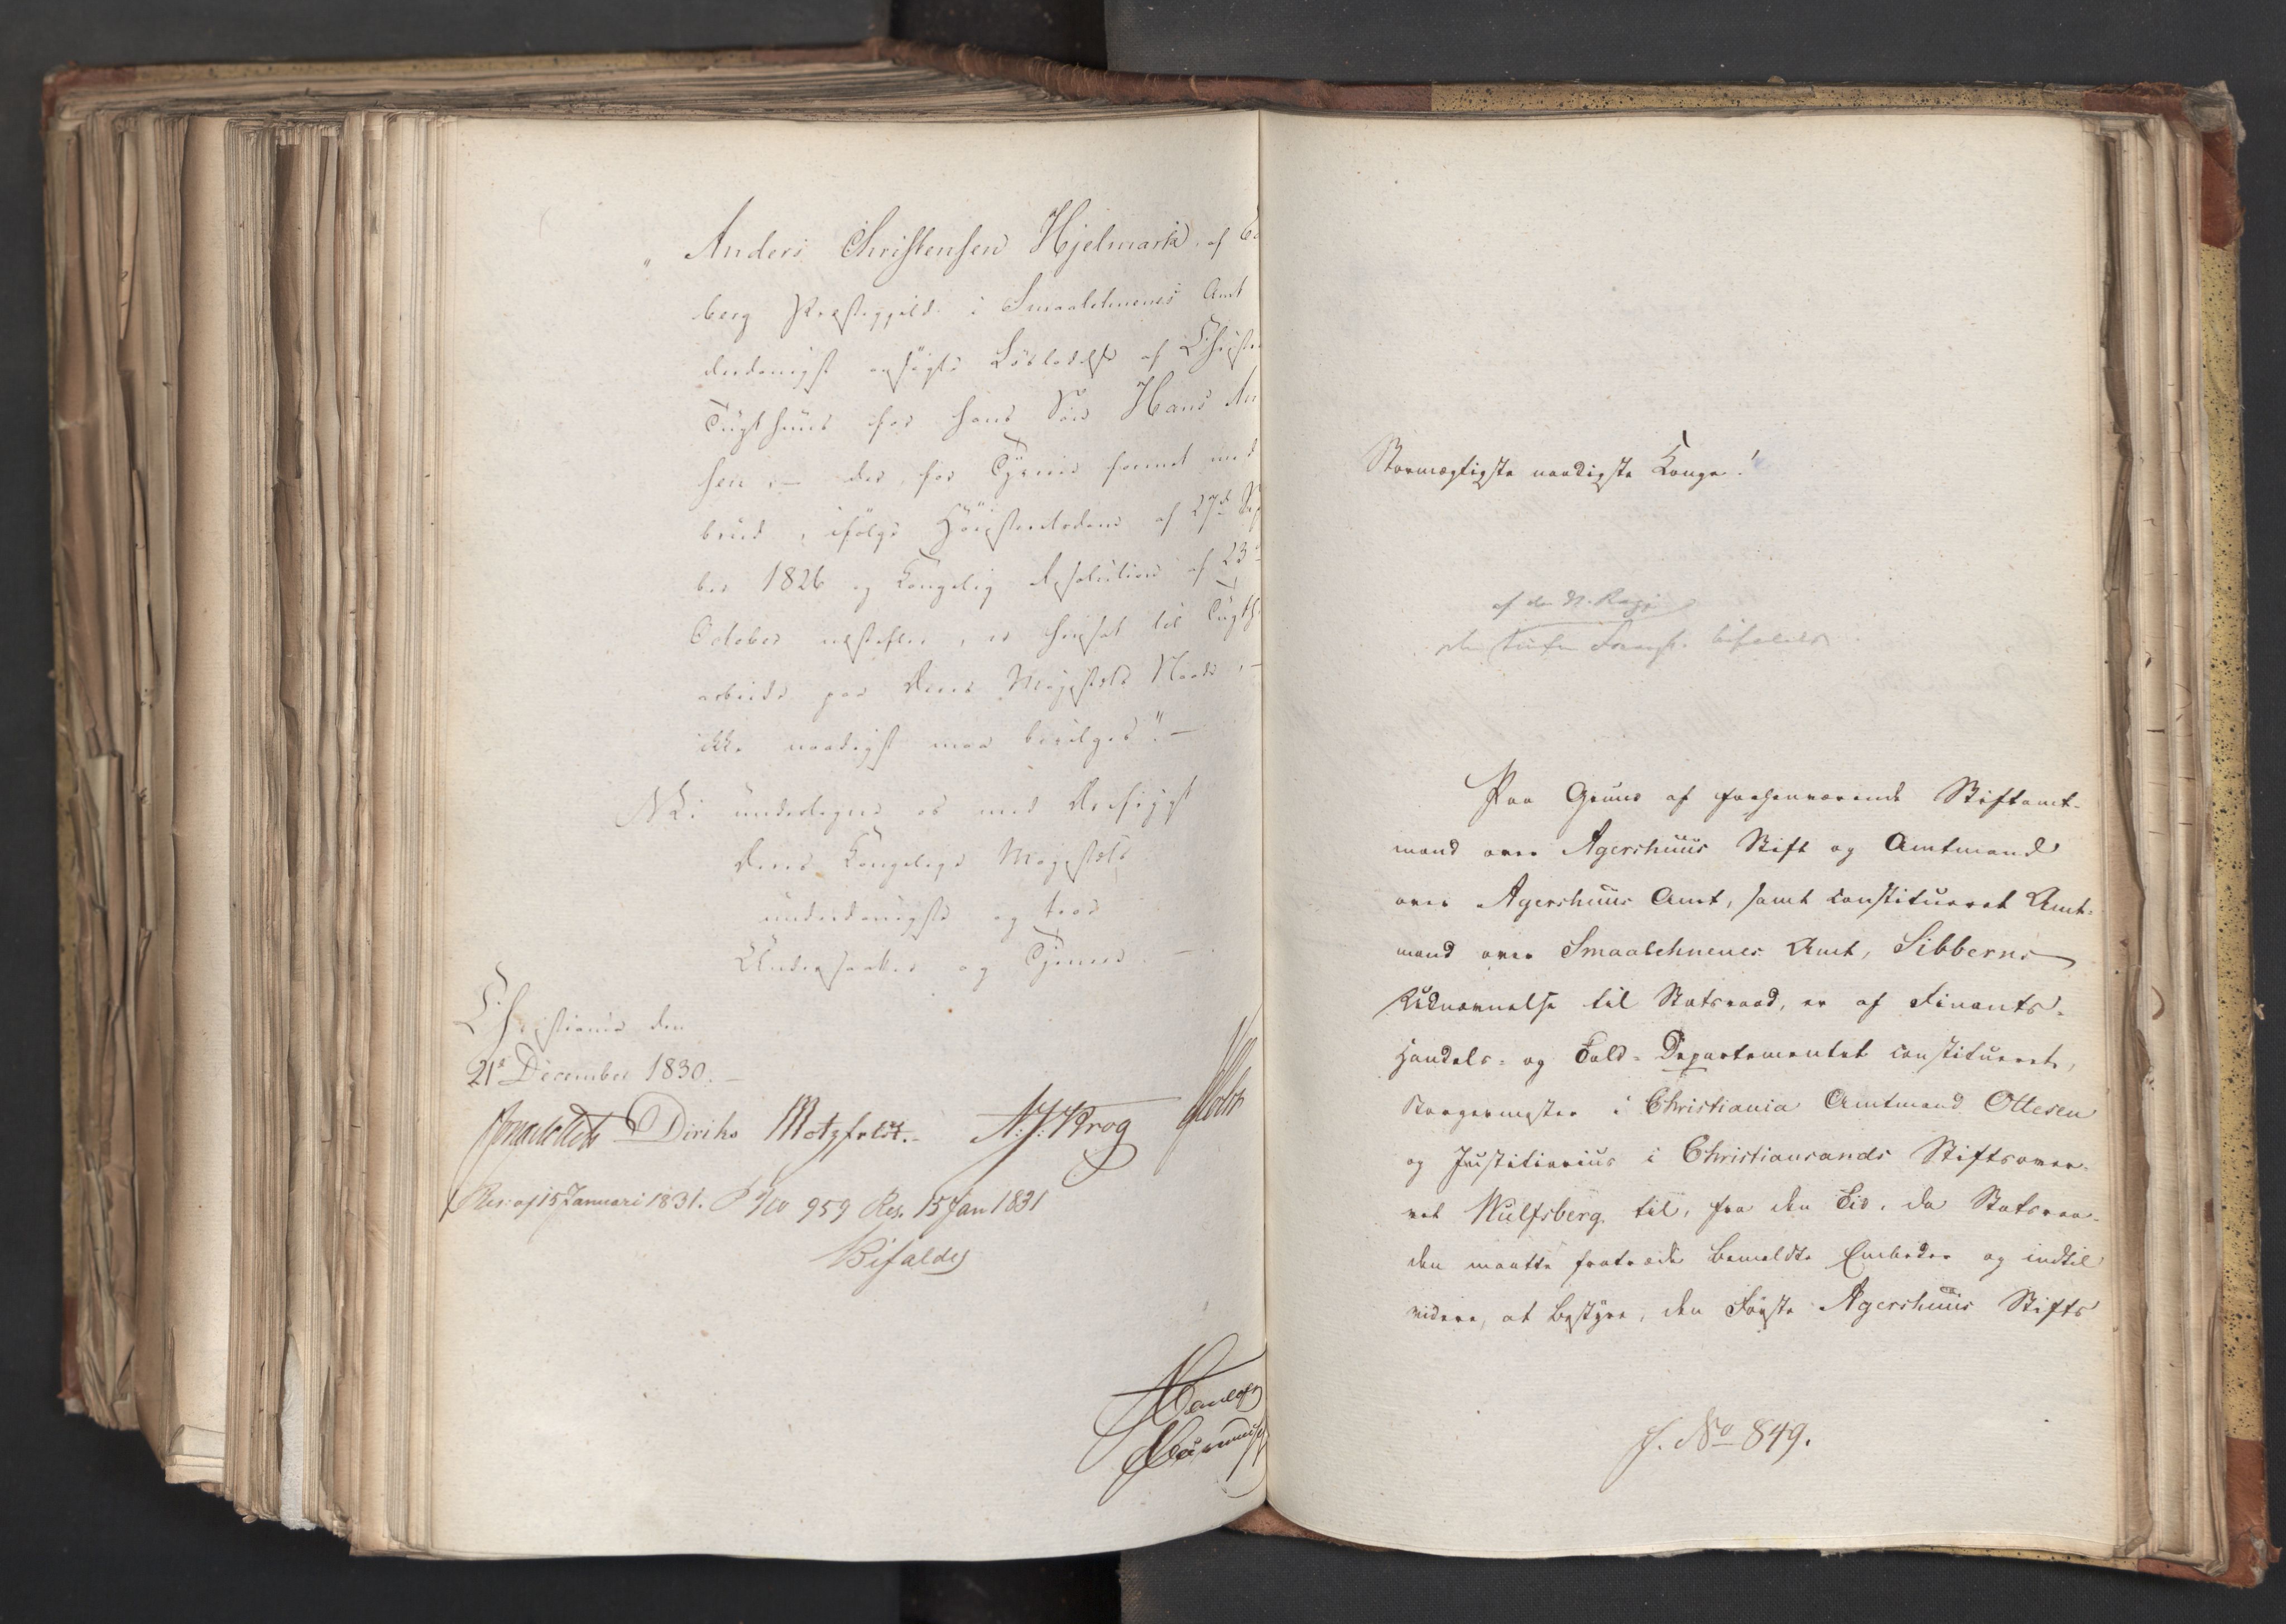 „ Anders Christensen Hjelmark, af
berg Præstegjeld i Smaalehnenes Amt
underdanigst ansøgte Løsladelse af Christia
Tugthuus for hans Søn Hans An
sen, – der, for Tyverie forenet med
brud, ifølge Høiesteretsdom af 27de Sep
ber 1826 og Kongelig Resolution af 23de
October næstefter, er hensat til Tugth
arbeide paa Deres Majestæts Naade, –
ikke naadigst maa bevilges". –
Vi undertegne os med Ærefrygt
Deres Kongelige Majestæts
underdanigste og troe
Undersaatter og Tjenere. –
Christiania den
21de December 1830. –
Diriks Motzfeldt. – N. J. Krog Holst
Res. af 15 Januari 1831. 959 Res. 15 Jan 1831
Bifaldes
Stormægtigste naadigste Konge!
af den N. Regj
bifaldes
Paa Grund af forhenværende Stiftamt-
mand over Agershuus Stift og Amtmand
over Agershuus Amt, samt constitueret Amt-
mand over Smaalehnenes Amt, Sibberns
Udnævnelse til Statsraad, er af Finants-
Handels- og Told-Departementet constitueret,
Borgermester i Christiania Amtmand Ottesen
og Justitiarius i Christiansands Stiftsover-
ret Wulfsberg til, fra den Tid, da Statsraa-
den maatte fratræde bemeldte Embeder og indtil
videre, at bestyre, den Første Agershuus Stifts
J. No 849.